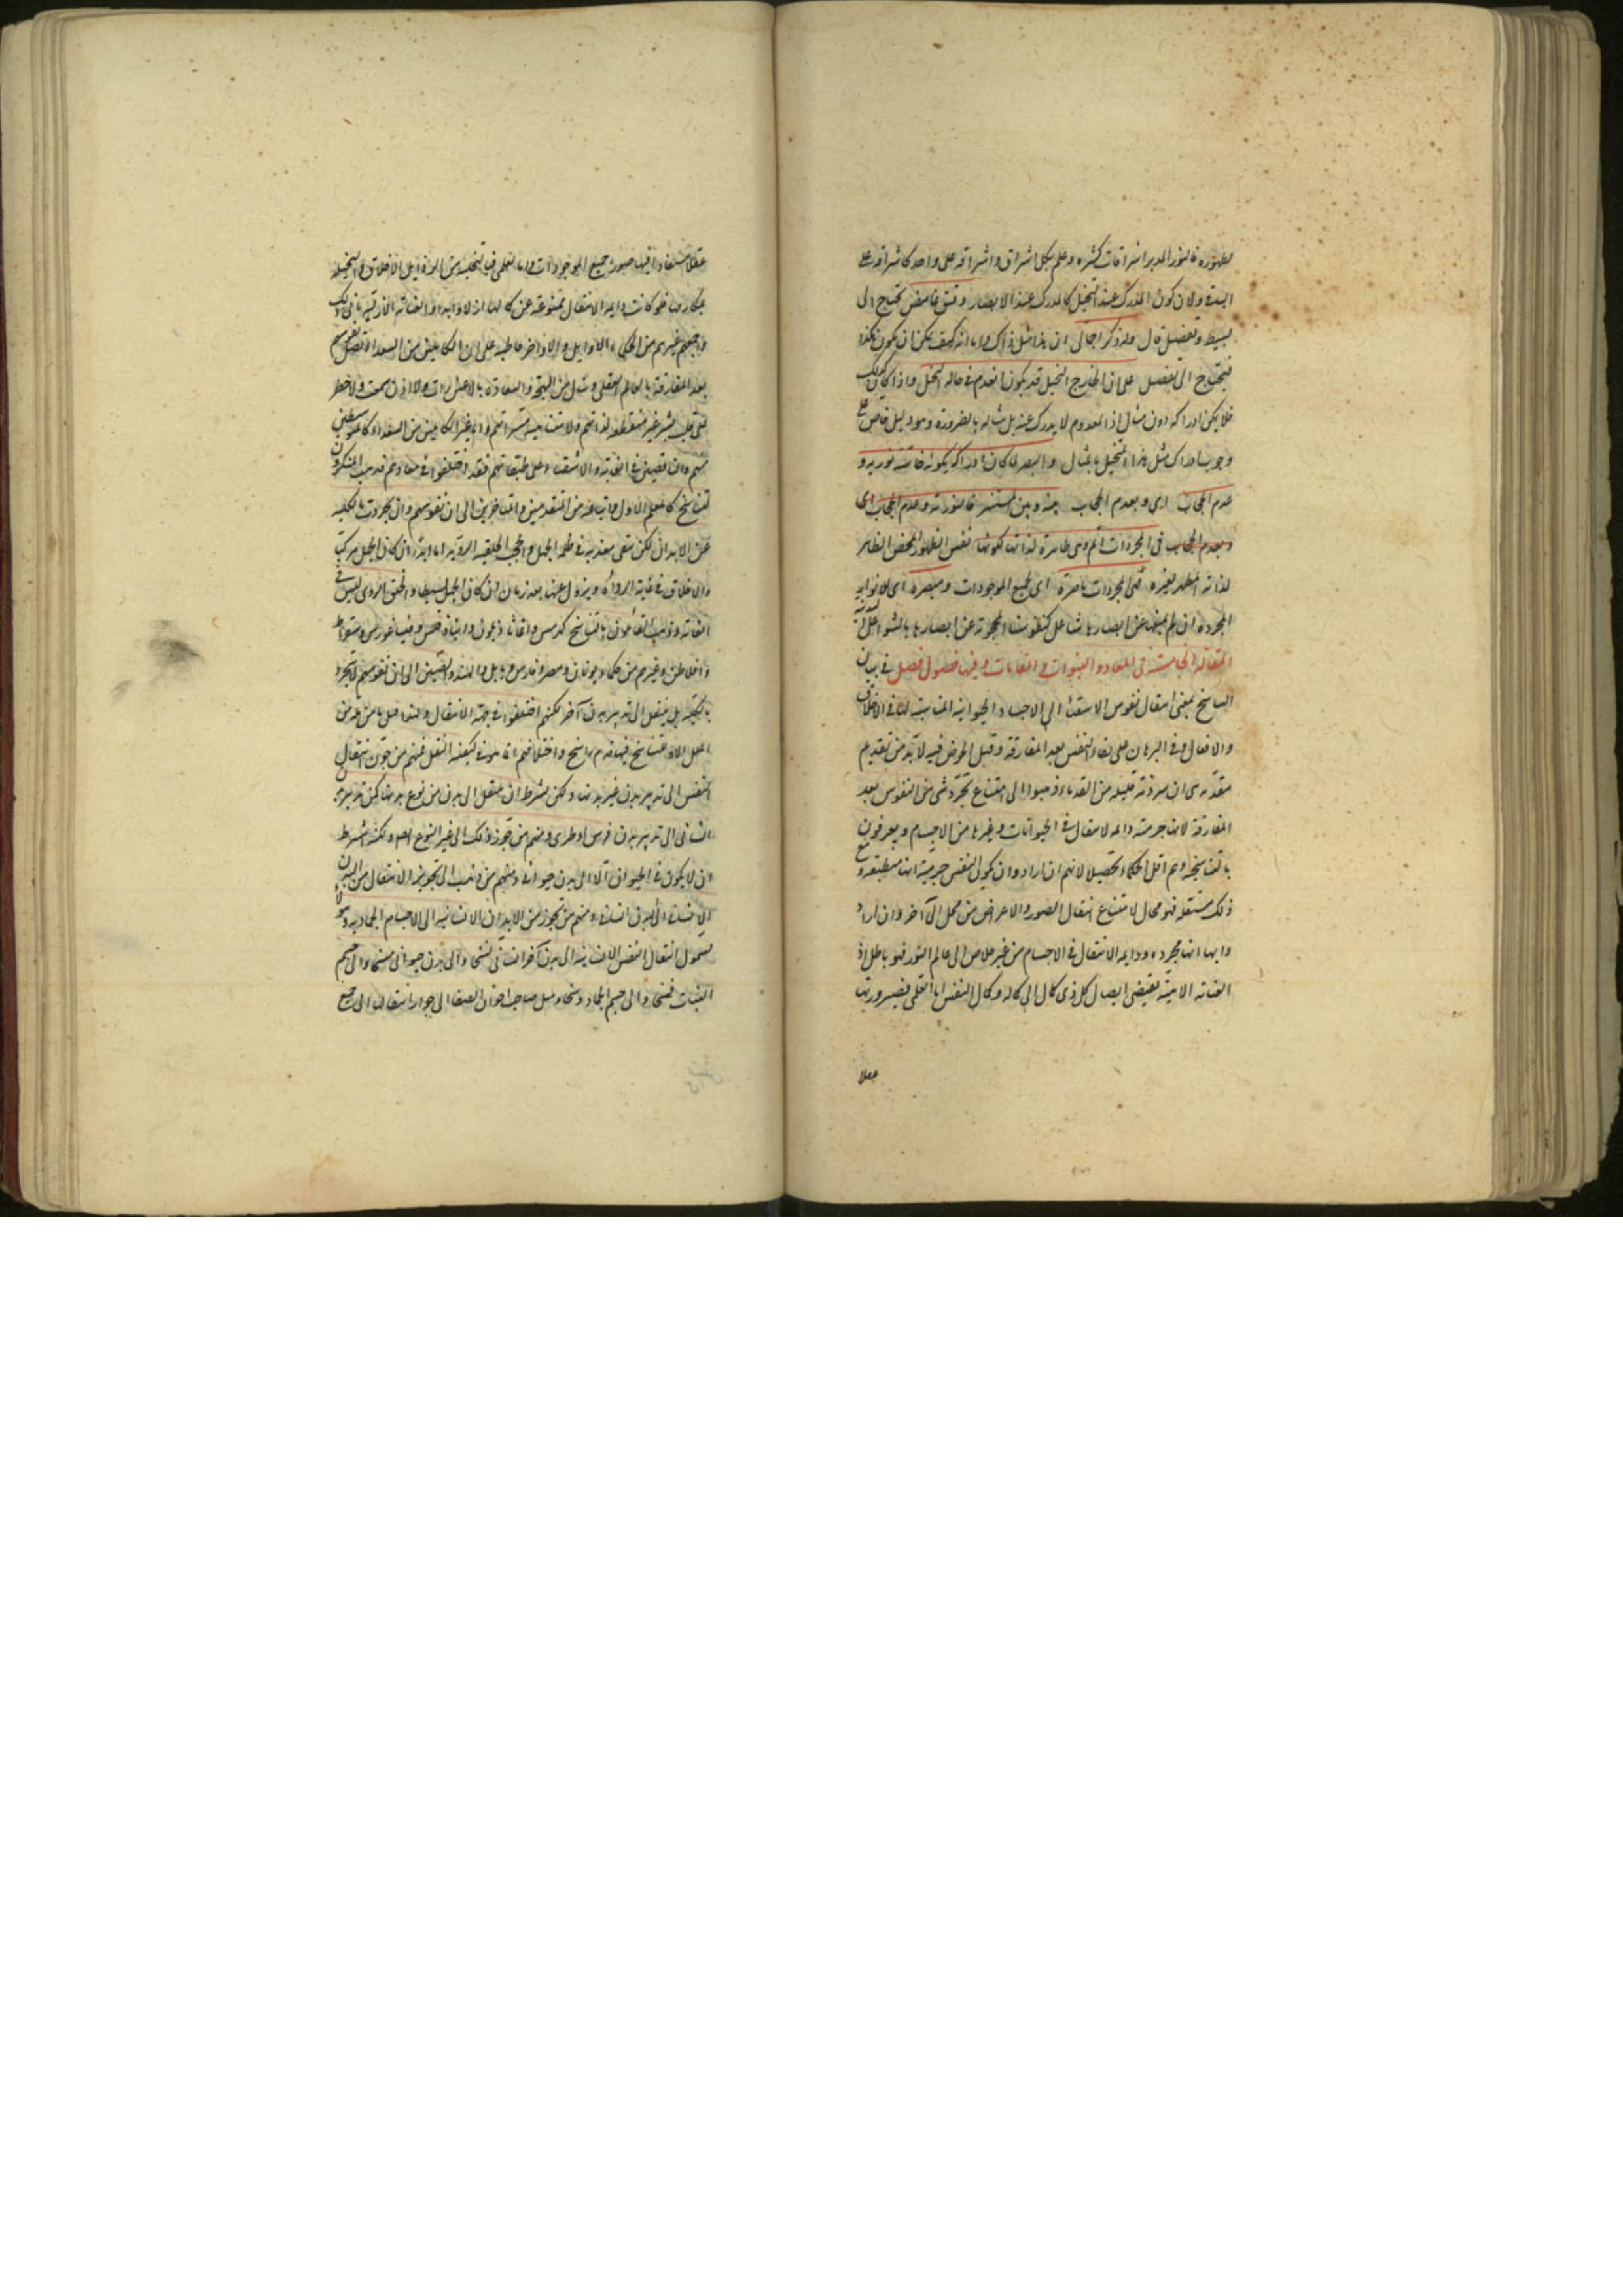 لظهوره فالنور المدبر اشراقات كثيره و علم بكل اشراق و اشراقه على واحد كاشراقه على
البدن و لان كون المدرك عند التخيل كالمدرك عند الابصار و فيق غامض يحتاج الى
بسيط و تفصيل قال و له ذكر اجمالى ان هذا مثل ذاك و اما انه كيف يمكن ان يكون هكذا
فيحتاج الى تفصيل على ان الخارج المتخيل قد يكون انعدم فى حاله التخيل و اذا كان كذلك
فلا يمكن ادراكه دون مثال اذ المعدوم لا يدرك عينه بل مثاله بالضرورة و هو دليل خاص على
وجوب ادراك مثل هذا المتخيل بالمثال و البصر لما كان ادراكه بكونه حاسة نوريه و
عدم الحجاب اى و بعدم الحجاب بينه و بين المستنير فالنورية و عدم الحجاب اى
و بعدم الحجاب فى المجردات اتم و هى ظاهرة لذاتها لكونها نفس الظهور المحض الظاهر
لذاته المظهر لغيره فهى المجردات باصرة اى لجميع الموجودات و مبصرة اى للانوار
المجرده ان لم يمنعها عن ابصارها شاغل كنفوسنا المحجوبة عن ابصارها بالشواغل البدنية
المقاله الخامسة فى المعاد و النبوات و المنامات و فيها فصول فصل فى بيان
التناسخ بمعنى انتقال نفوس الاشقياء الى الاجساد الحيوانيه المناسبة لها فى الاخلاق
و الافعال و فى البرهان على بقاء النفس بعد المفارقة و قبل الخوض فيه لا بد من تقديم
مقدمة هى ان شرذمة قليله من القدماء ذهبوا الى امتناع تجرد شى من النفوس بعد
المفارقة لانها جرمية دايمه الانتقال فى الحيوانات و غيرها من الاجسام و يعرفون
بالتناسخية و هم اقل الحكماء تحصيلا لانهم ان ارادوا ان يكون النفس جرمية انها منطبعه و مع
ذلك منتقله فهو محال لامتناع انتقال الصور و الاعراض من محل الى آخر و ان ارادوا
بها انها مجرده و دايمه الانتقال فى الاجسام من غير خلاص الى عالم النور فهو باطل اذ
العناية الالهية تقتضى ايصال كل ذى كمال الى كماله و كمال النفس اما العلمى فصيرورتها
عقلا
عقلا مستفادا فيها صورة جميع الموجودات و اما العملى فبالتخلية عن الرذايل الاخلاق و التحلية
بمكارمها فلو كانت دايمه الانتقال ممنوعة عن كمالها ازلا و ابدا و العناية الازليه تابى ذلك
و اجمعهم غيرهم من الحكماء الاوايل و الاواخر قاطبه على ان الكاملين من السعدا تتصل نفوسهم
بعد المفارقة بالعالم العقلى و ينال من البهجة و السعادة ما لا عين رات و لا اذن سمعت و لا خطر
على قلب بشر غير منقطعه لذاتهم و لا متناهيه مسراتهم و اما غير الكاملين من السعداء كالمتوسطين
منهم و الناقصين فى الغاية و الاشقياء على طبقاتهم فقد اختلفوا فى معادهم فذهب المنكرون
للتناسخ كالمعلم الاول و اتباعه من المتقدمين و المتاخرين الى ان نفوسهم و ان تجردت بالكليه
عن الابدان لكن تبقى معذبه فى ظلمه الجهل و الحجب الخلقيه الرديه اما ابدا ان كان الجهل مركبا
و الاخلاق فى غاية الرداءة و يزول عنها بعد زمان ان كان الجهل بسيطا و الخلق الردى ليس فى
الغاية و ذهب القائلون بالتناسخ كهرمس و اغاثاذيمون و انباذقلس و فيثاغورس و سقراط
و افلاطن و غيرهم من حكماء يونان و مصر و فارس و بابل و الهند و الصين الى ان نفوسهم لا تتجرد
بالكليه بل ينتقل الى تدبير بدن آخر لكنهم اختلفوا فى جهة الانتقال و لهذا قيل ما من مله من
الملل الا و للتناسخ فيها قدم راسخ و اختلافهم انما هو فى كيفيه النقل فمنهم من جوز انتقال
النفس الى تدبير بدن غير بدنها و لكن بشرط ان ينتقل الى بدن من نوع بدنها كمن تدبير بدن
انسانى الى تدبير بدن فرس او طير و منهم من يجوز ذلك الى غير النوع ايضا و لكنه اشترط
ان لا يكون فى الحيوان الا الى بدن حيوانى و منهم من ذهب الى تجويز الانتقال من البدن
الانسانى الى بدن انسان و منهم من يجوز من الابدان الانسانيه الى الاجسام الجماديه و هولاء
يسمون انتقال النفس الانسانيه الى بدن آخر انسانى نسخا و الى بدن حيوانى مسخا و الى جسم
النبات فسخا و الى جسم الجماد رسخا و ميل صاحب اخوان الصفا الى جواز انتقالها الى جميع